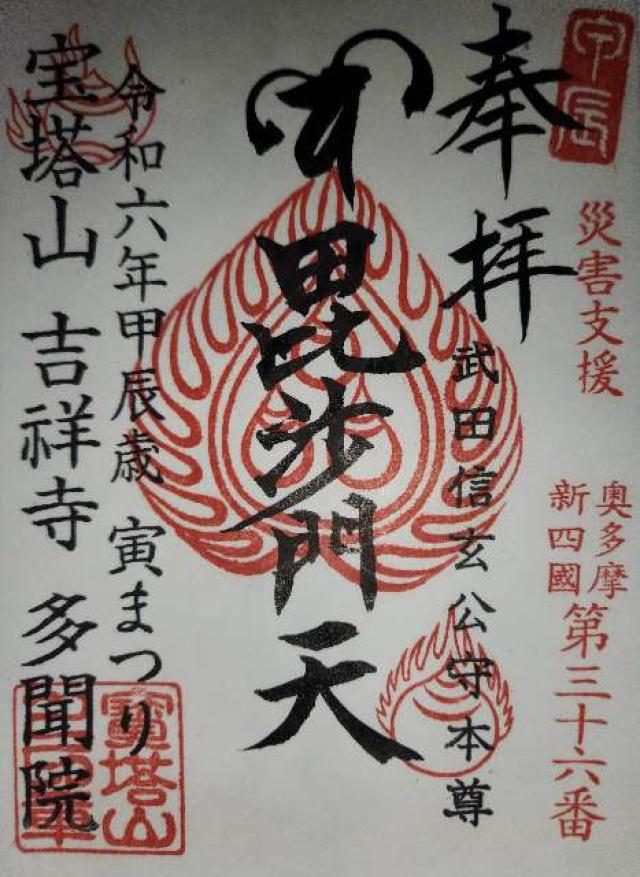 甲辰
奉拝
災害支援
奥多摩
新四國
第三十六番
武田信玄公守本尊
毘沙門天
令和六年甲辰歳 寅まつり
宝塔山 吉祥寺 多聞院
寳塔山